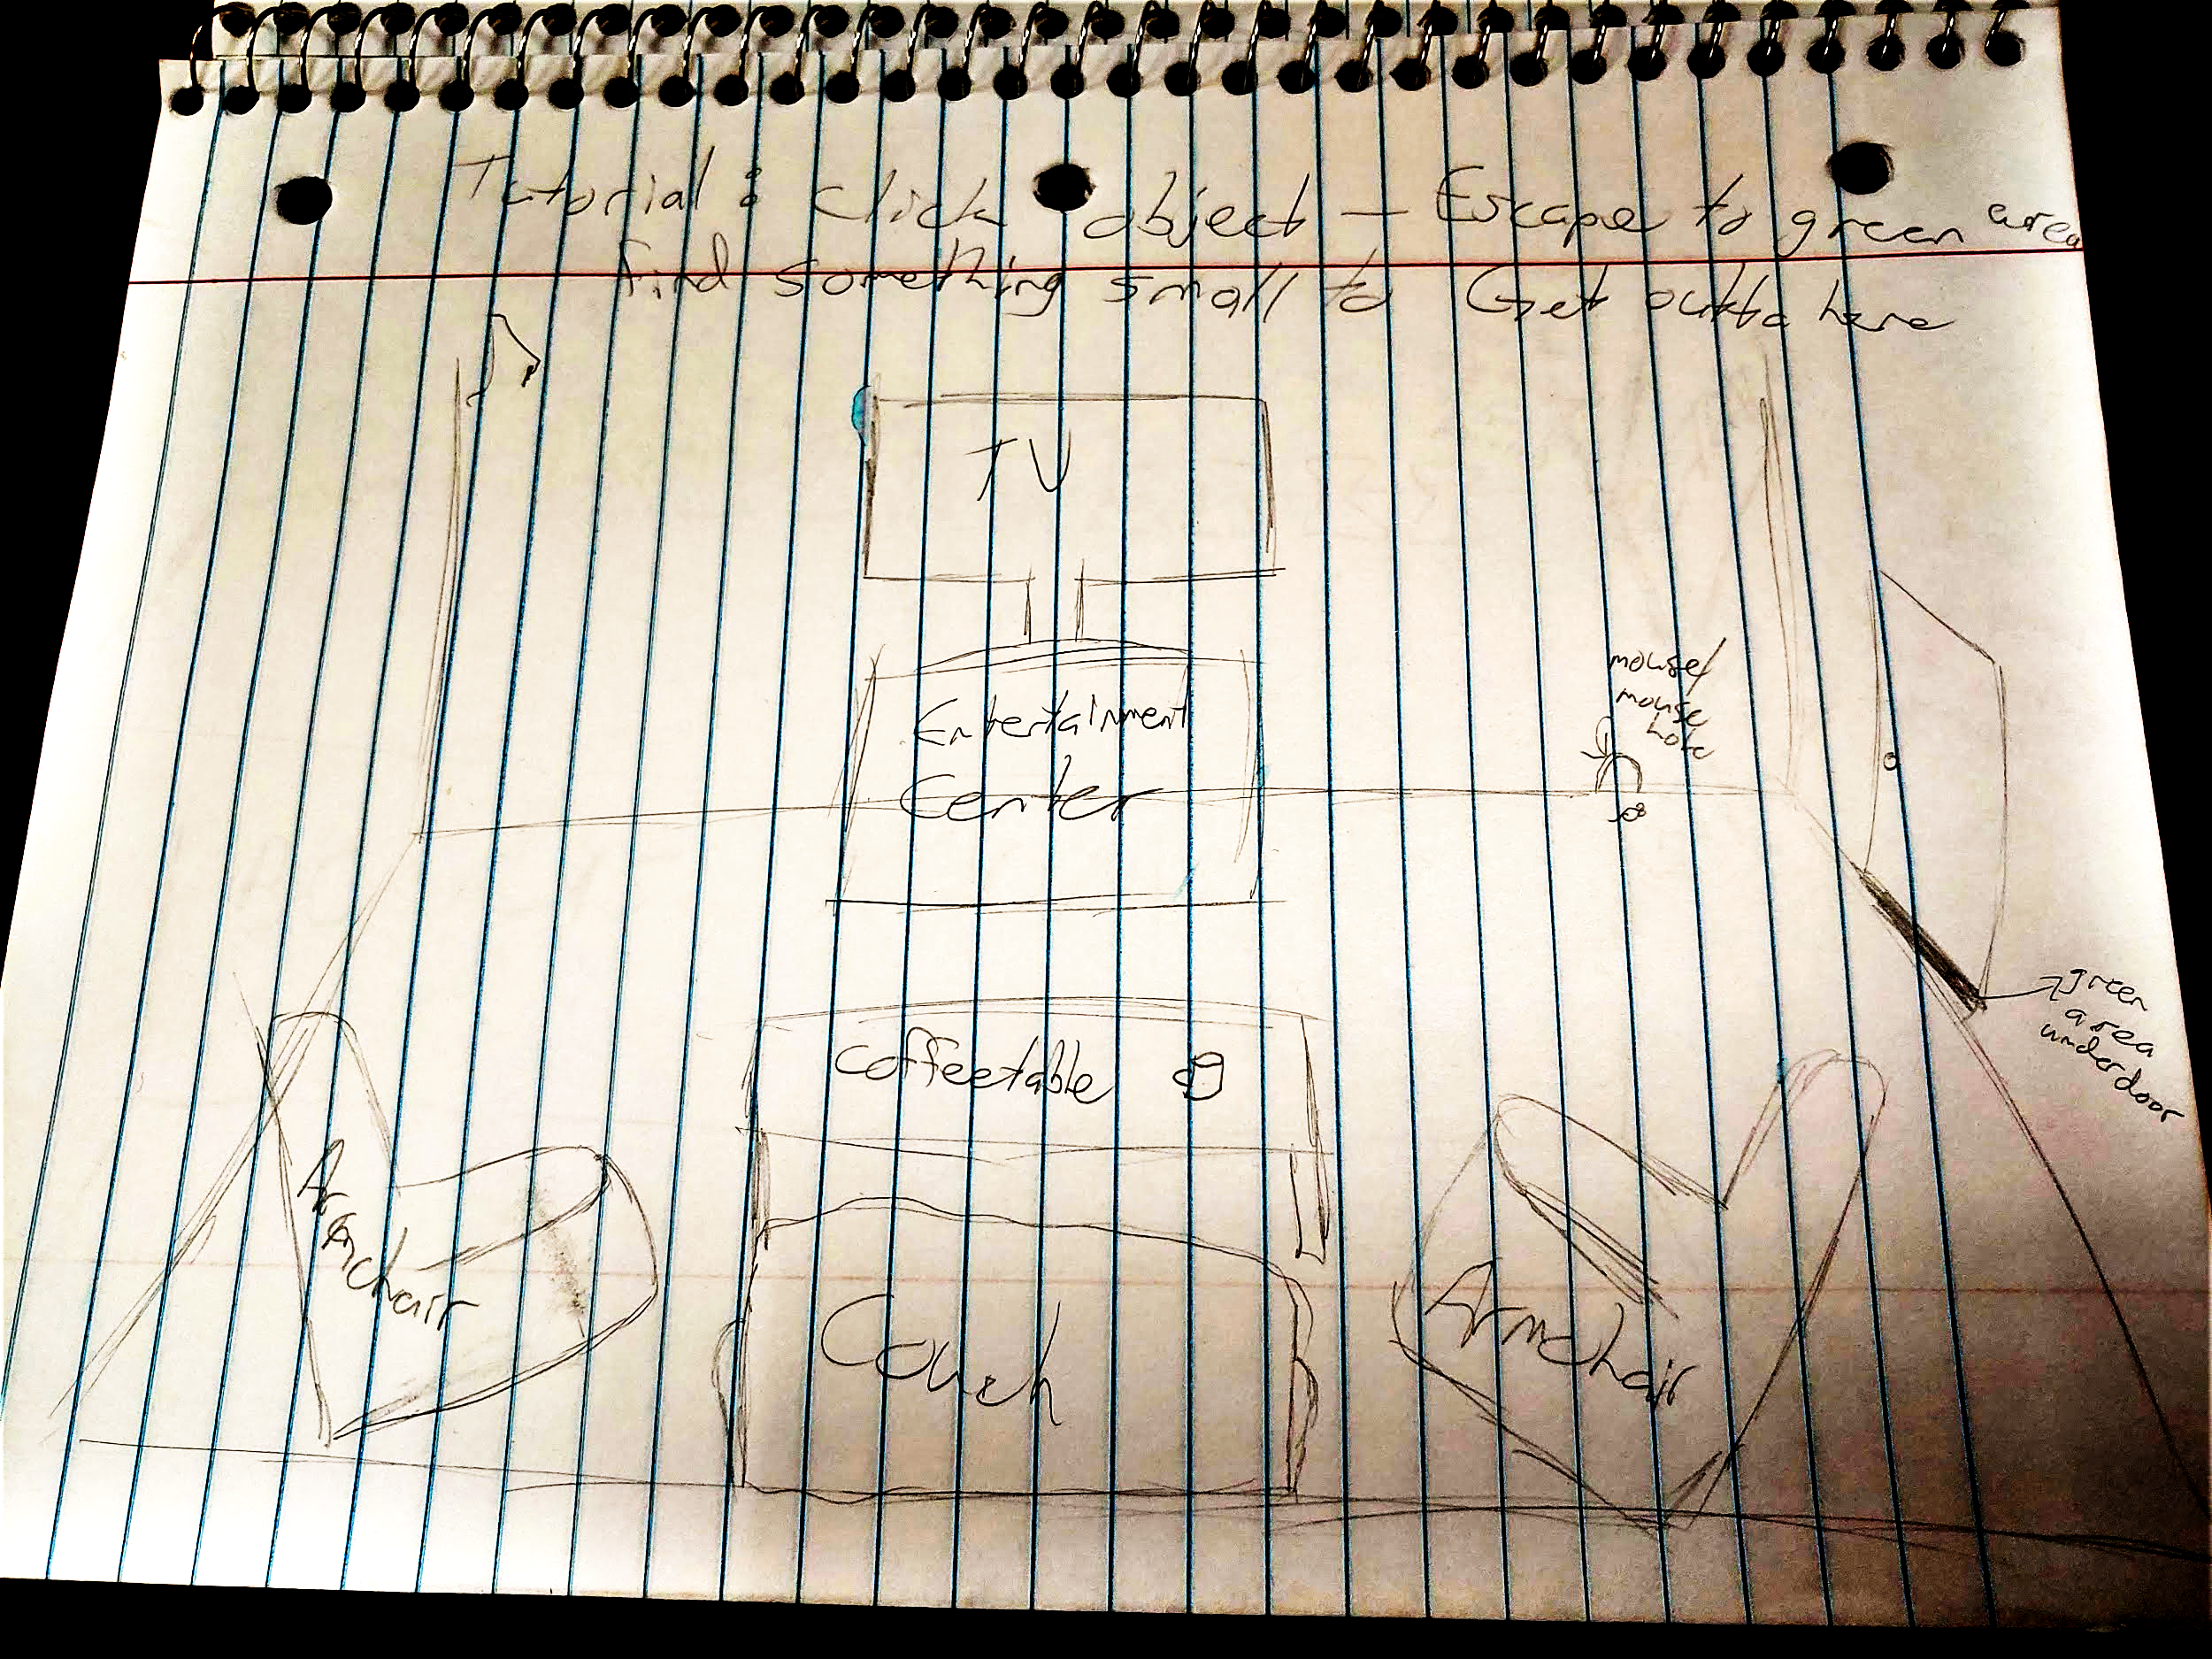 Tutorial: Click object — Escape to green area
find something small to Get outta here
TV
Entertainment
Center
mouse/
mouse
hole
green
area
underdoor
Coffeetable
Armchair
Couch
Armchair